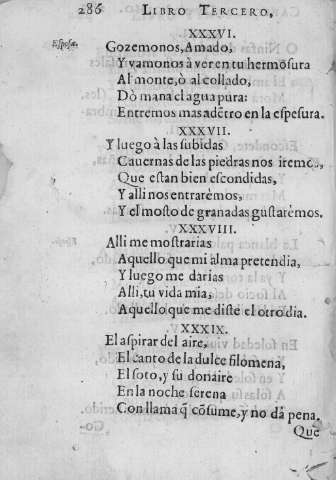 286 LIBRO TERCERO,
XXXVI.
Esposa. Gozemonos, Amado,
Y vamonos à ver en tu hermosura
Al monte, ò al collado,
Dò mana el agua pura:
Entremos mas adẽtro en la espesura.
XXXVII.
Y luego à las subidas
Cauernas de las piedras nos iremos,
Que estan bien escondidas,
Y alli nos entrarèmos,
Y el mosto de granadas gustarèmos.
XXXVIII.
Alli me mostrarias
Aquello que mi alma pretendia,
Y luego me darias
Alli, tu vida mia,
Aquello que me diste el otro dia.
XXXIX.
El aspirar del aire,
El canto de la dulce filomena,
El soto, y su donaire
En la noche serena
Con llama q̃ cõsume, y no dà pena.
Que